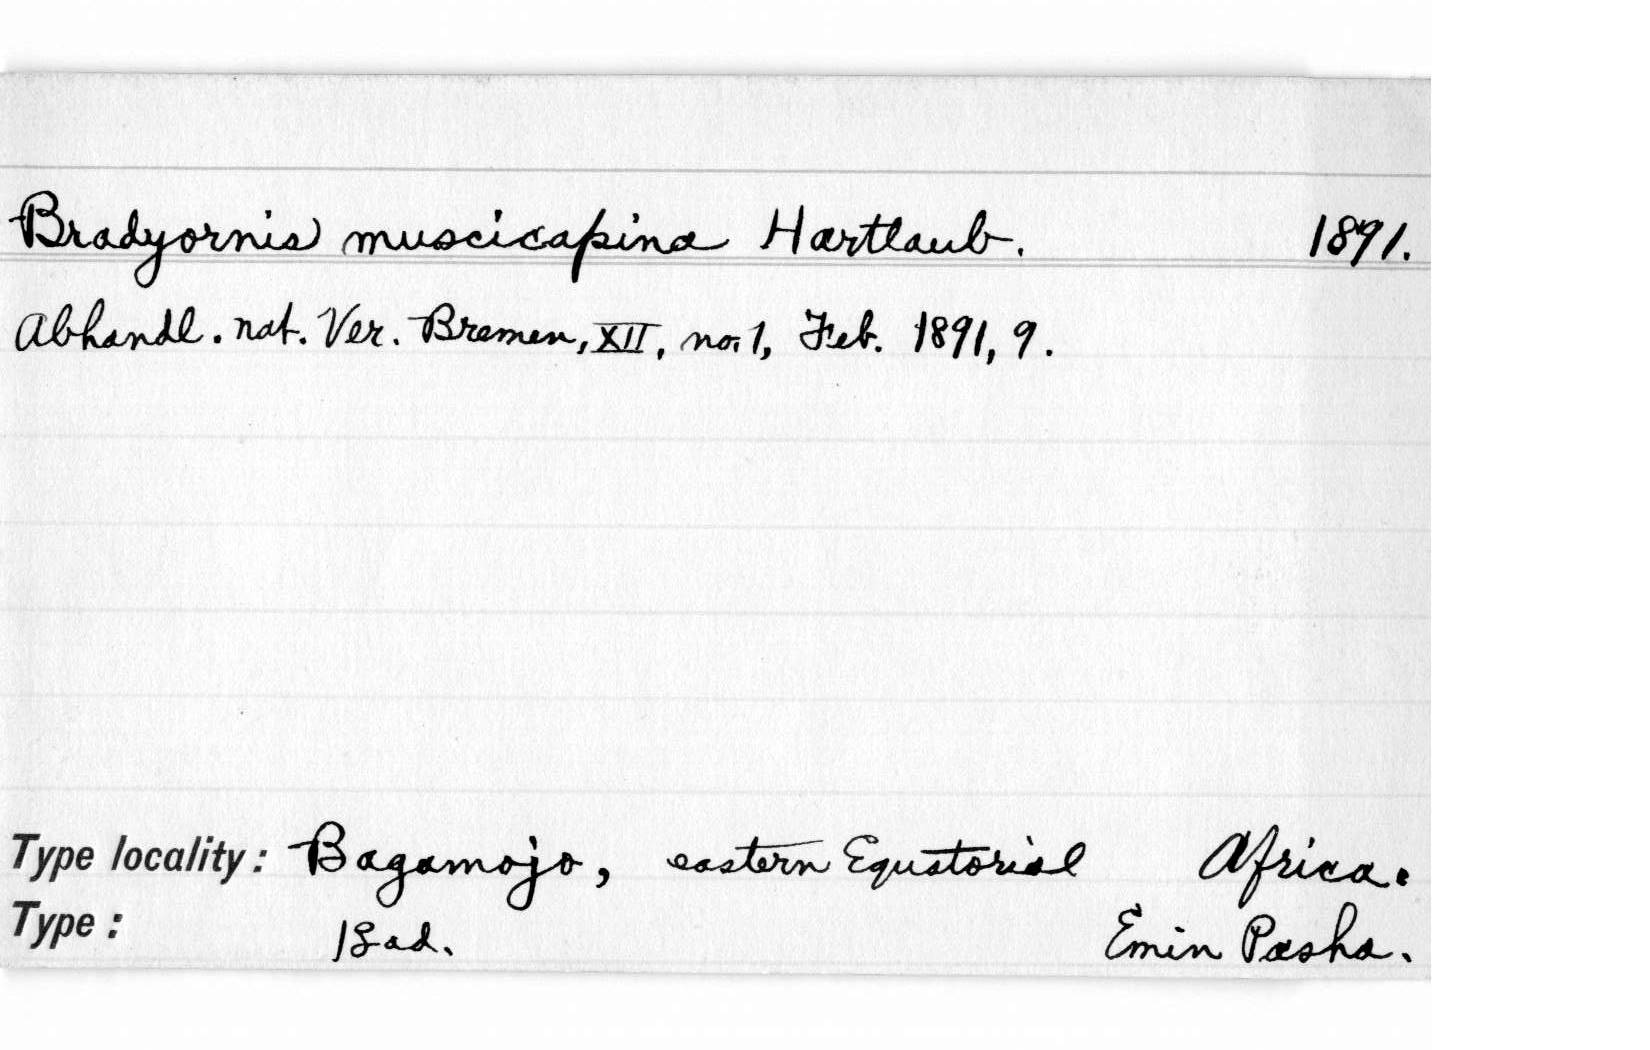 Bradyornis muscicapina Hartlaub. 1891.
Abhandl. nat. Ver. Bremen, XII, no. 1, Feb. 1891, 9.
Type locality: Bagamojo, eastern Equatorial Africa.
Type: 1 ad. Emin Pasha.